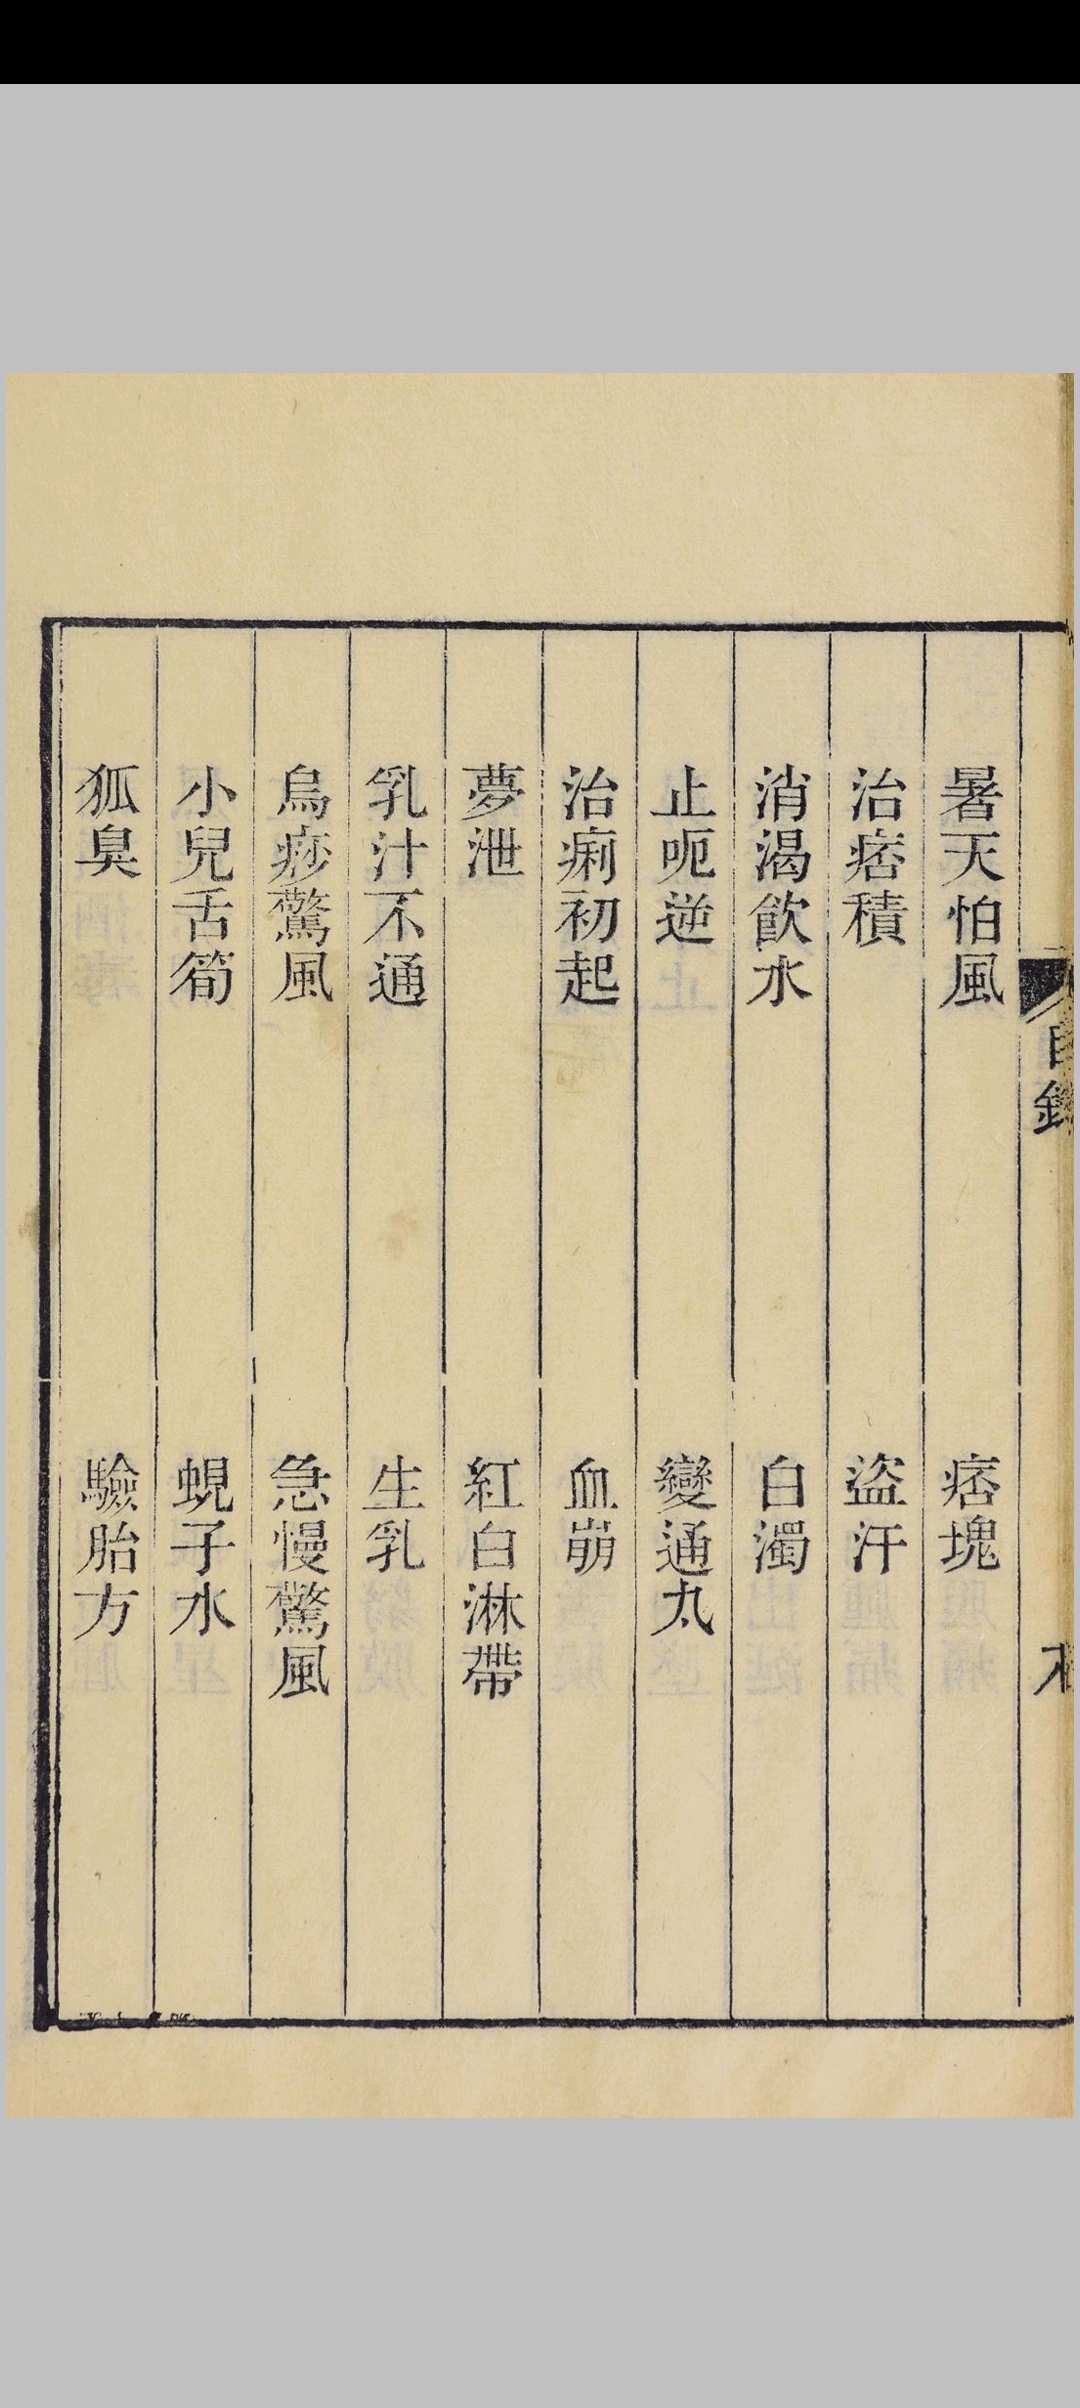 目錄
暑天怕風
痞塊
治痞積
盜汗
消渴飲水
白濁
止呃逆
變通丸
治痢初起
血崩
夢泄
紅白淋帶
乳汁不通
生乳
烏痧驚風
急慢驚風
小兒舌筍
蜆子水
狐臭
驗胎方